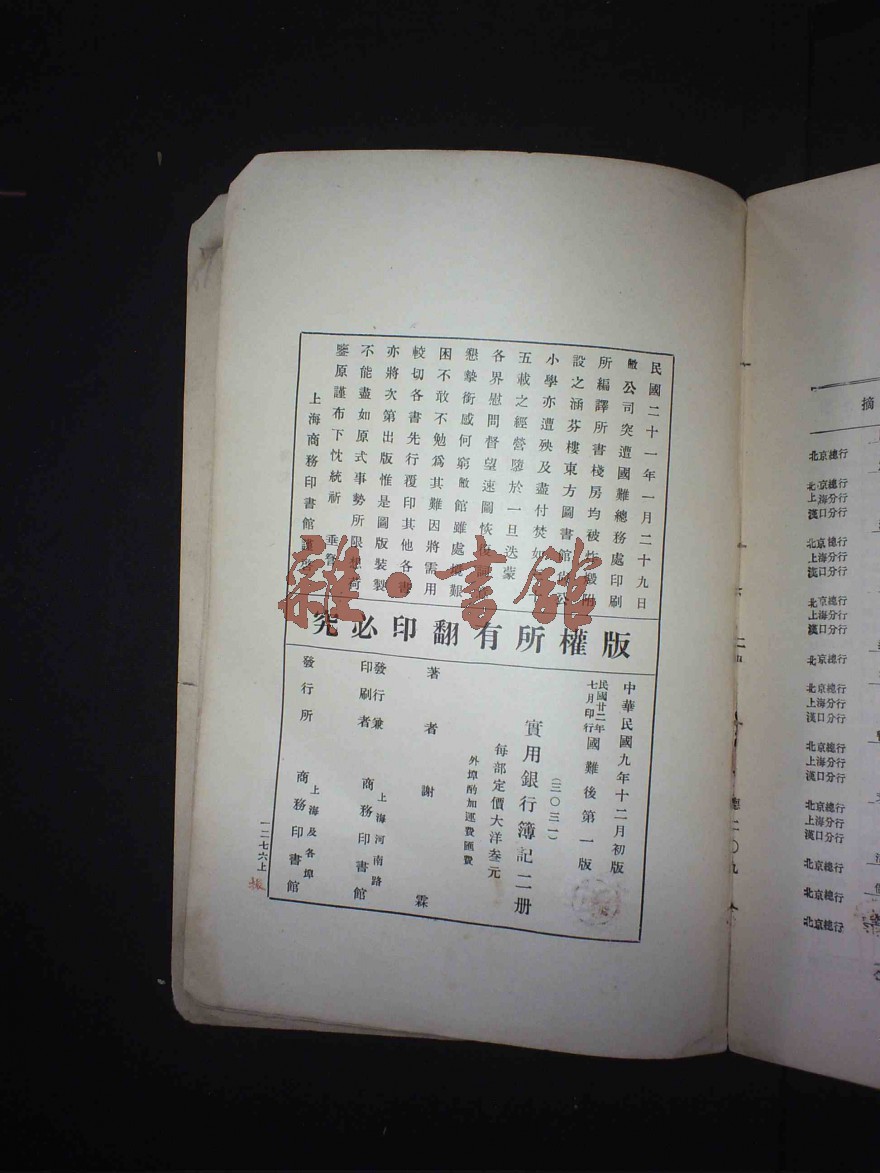 民國二十一年一月二十九日
敝公司突遭國難總務處印刷
所編譯所書棧房均被炸燬附
設之涵芬樓東方圖書館
小學亦遭殃及盡付焚如
五載之經營墮於一旦迭蒙
各界慰問督望速圖恢復
懇摯銜感何窮敝館雖處境艱
困不敢不勉為其難因將需用
較切各書先行覆印其他各書
亦將次第出版惟是圖版裝製
不能盡如原式事勢所限想荷
鑒原謹布下忱統祈 垂詧
上海商務印書館謹啟
版權所有翻印必究
中華民國九年十二月初版
民國廿二年七月印行國難後第一版
(三〇三一)
實用銀行簿記二册
每部定價大洋叁元
外埠酌加運費匯費
著者 謝霖
發行兼印刷者 上海河南路 商務印書館
發行所 上海及各埠 商務印書館
一二七六上
雜·書館
摘
北京總行
北京總行
上海分行
漢口分行
北京總行
上海分行
漢口分行
北京總行
上海分行
漢口分行
北京總行
北京總行
上海分行
漢口分行
北京總行
上海分行
漢口分行
北京總行
上海分行
漢口分行
北京總行
北京總行
北京總行